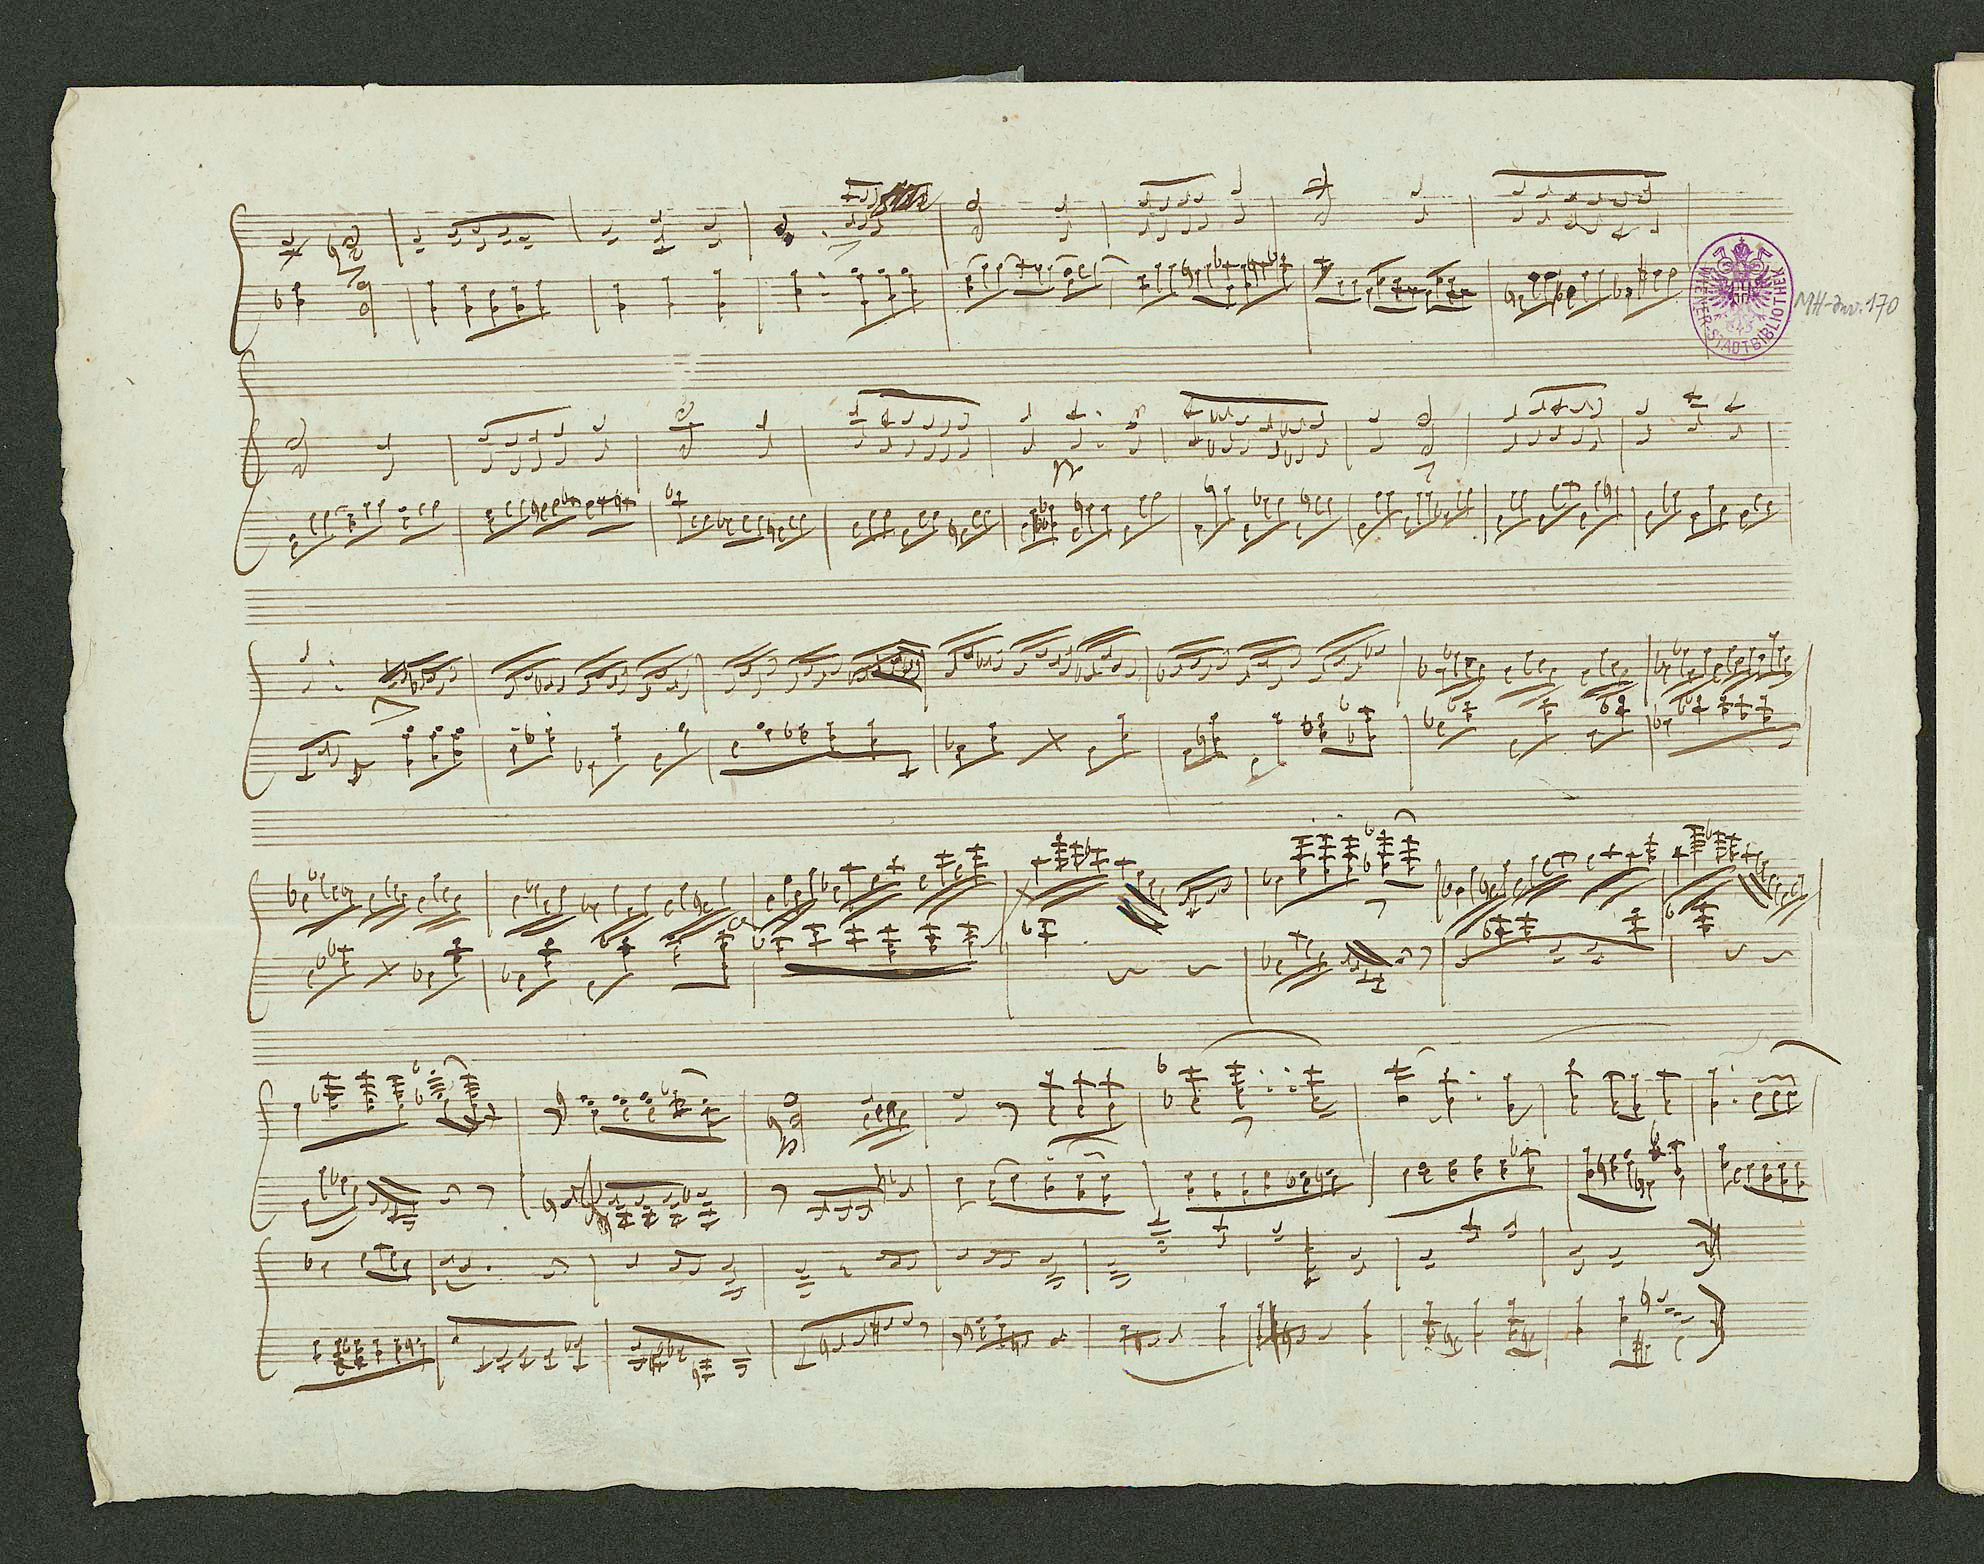 WIENER STADTBIBLIOTHEK
MH-Inv. 170